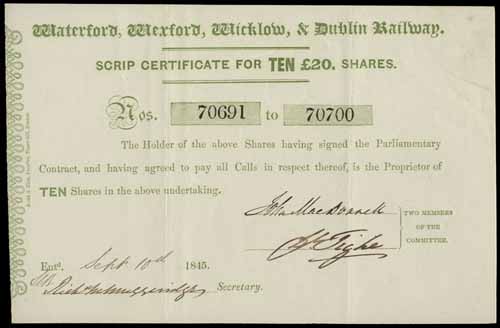 Waterford, Wexford, Wicklow, & Dublin Railway.
SCRIP CERTIFICATE FOR TEN £20. SHARES.
Nos. 70691 to 70700
The Holder of the above Shares having signed the Parliamentary
Contract, and having agreed to pay all Calls in respect thereof, is the Proprietor of
TEN Shares in the above undertaking.
John MacDonnell
Tighe
TWO MEMBERS
OF THE
COMMITTEE.
Entd. Sept 10th 1845.
Secretary.